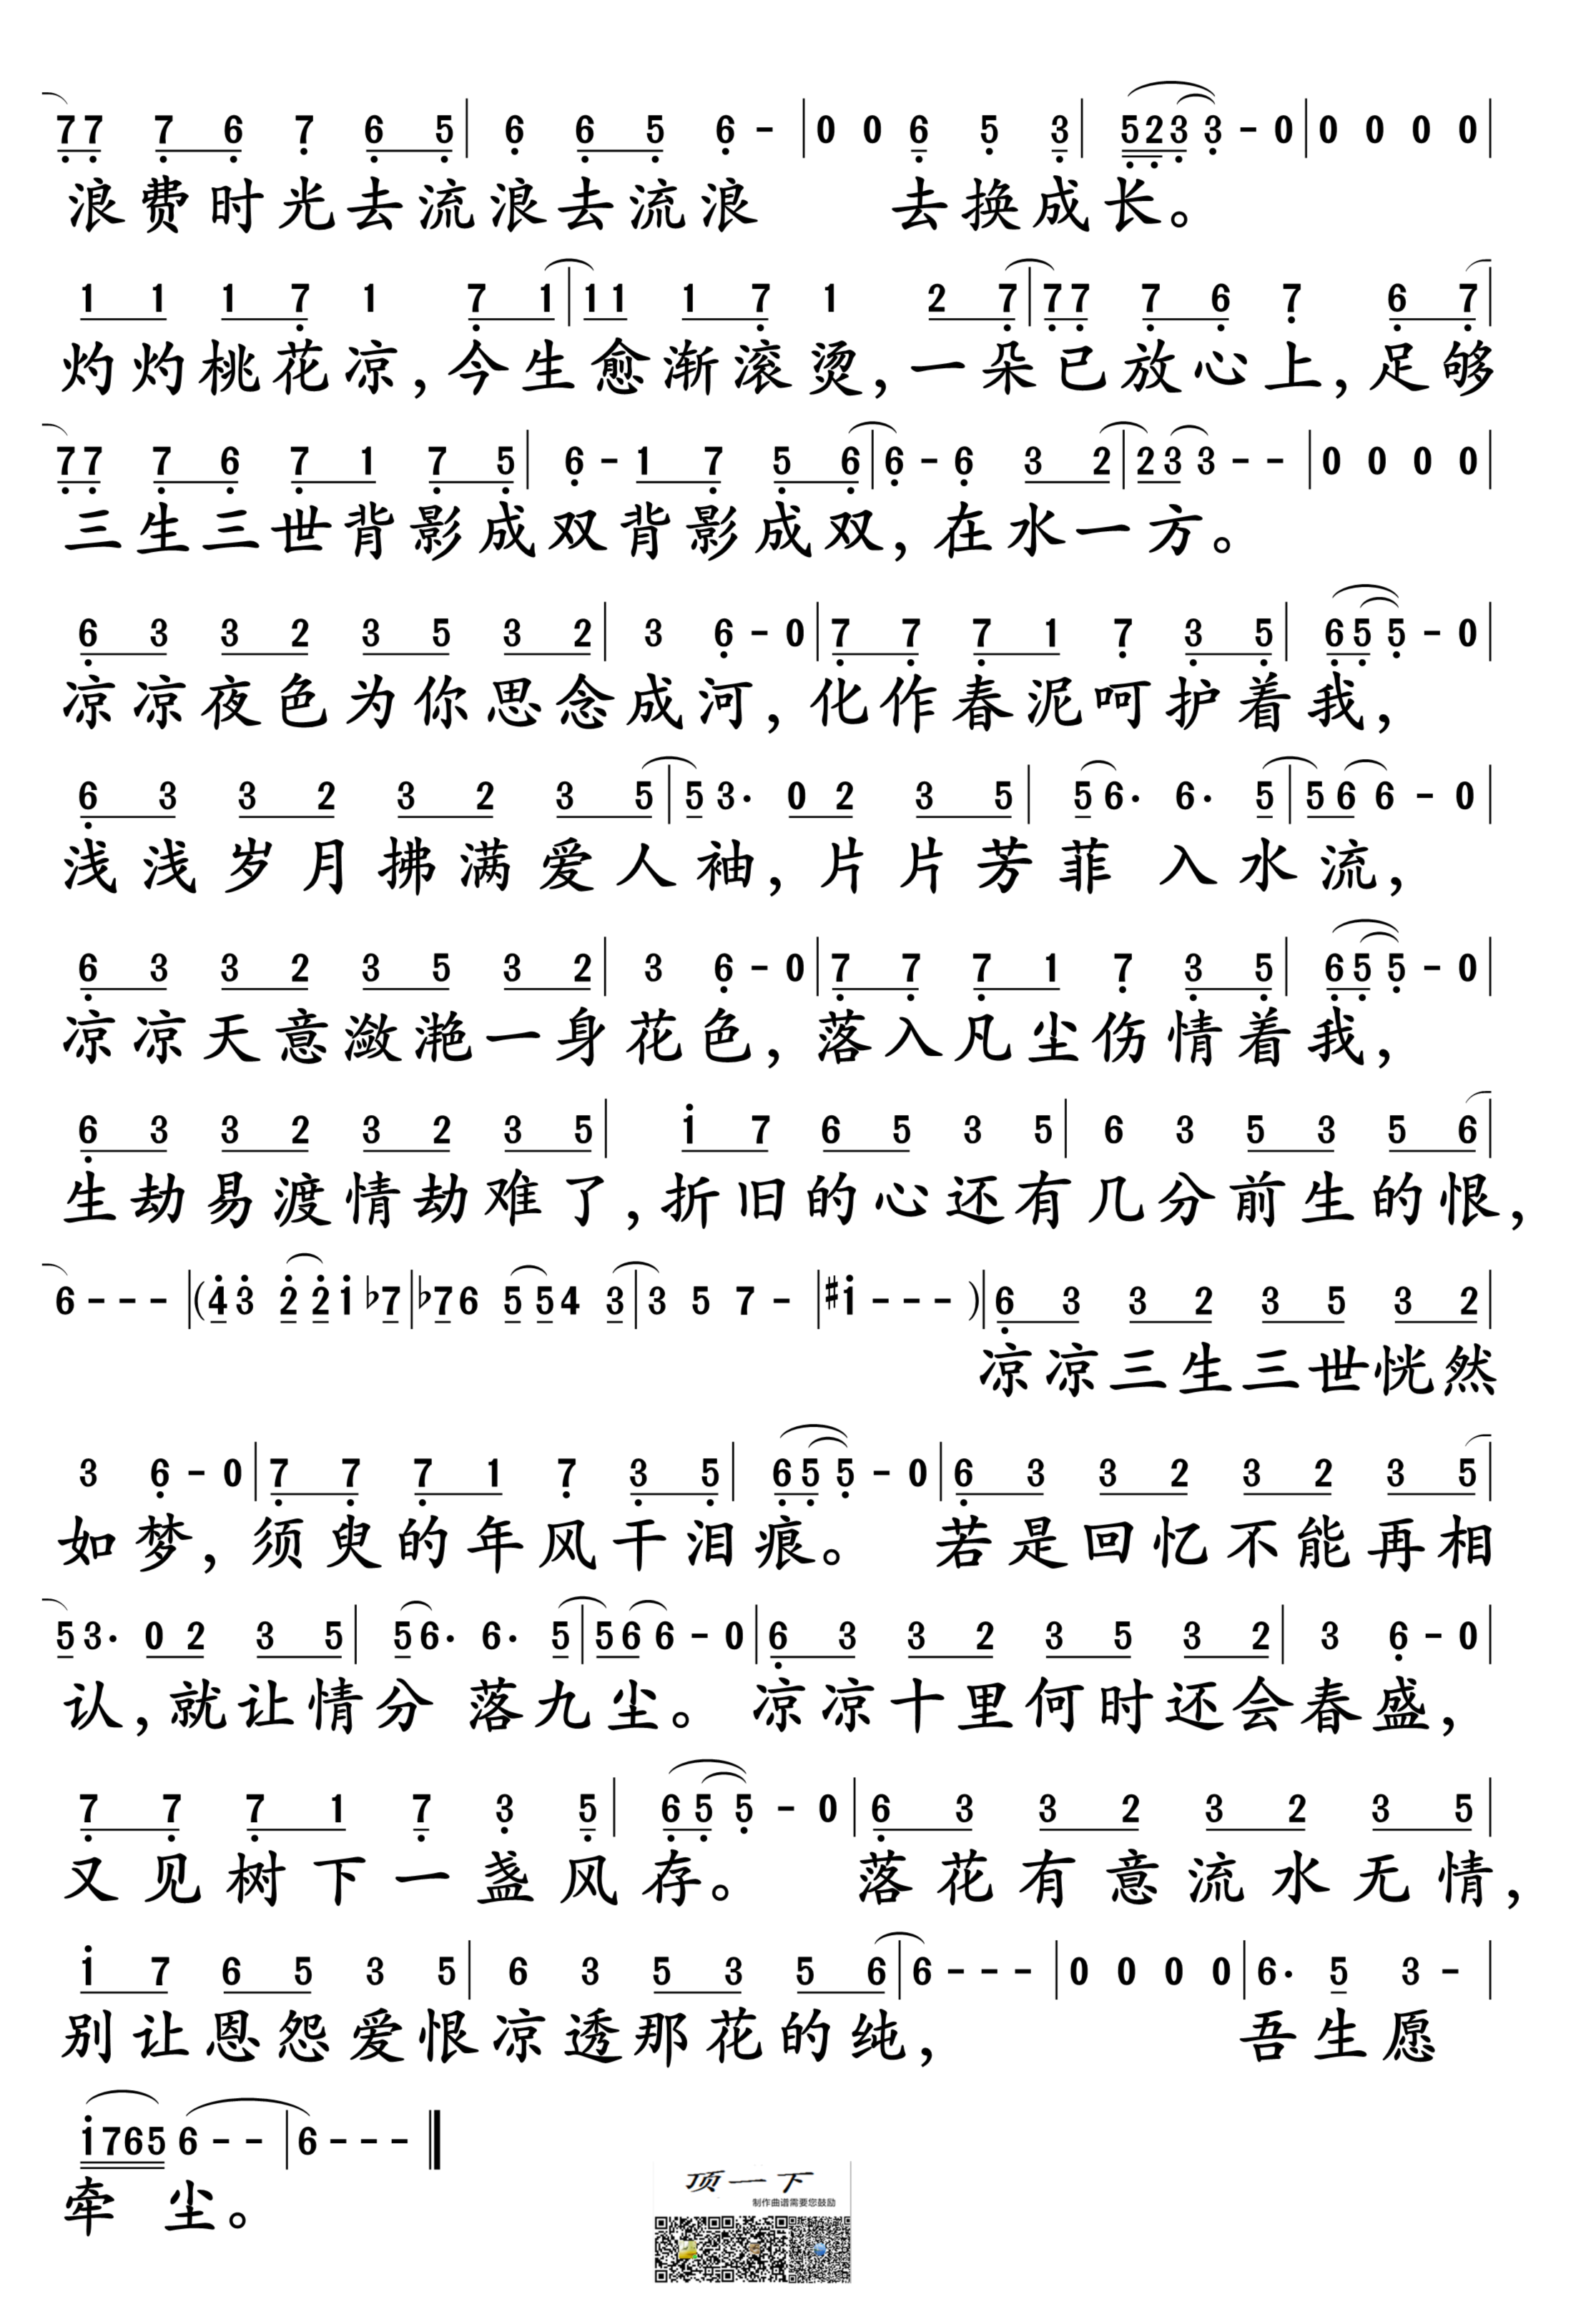 7 7 7 6 7 6 5 | 6 6 5 6 - | 0 0 6 5 3 | 5 2 3 3 - 0 | 0 0 0 0 |
浪费时光去流浪去流浪 去换成长。
1 1 1 7 1 7 1 | 1 1 1 7 1 2 7 | 7 7 7 6 7 6 7 |
灼灼桃花凉,今生愈渐滚烫,一朵已放心上,足够
7 7 7 6 7 1 7 5 | 6 - 1 7 5 6 | 6 - 6 3 2 | 2 3 3 - - | 0 0 0 0 |
三生三世背影成双背影成双,在水一方。
6 3 3 2 3 5 3 2 | 3 6 - 0 | 7 7 7 1 7 3 5 | 6 5 5 - 0 |
凉凉夜色为你思念成河,化作春泥呵护着我,
6 3 3 2 3 2 3 5 | 5 3· 0 2 3 5 | 5 6· 6· 5 | 5 6 6 - 0 |
浅浅岁月拂满爱人袖,片片芳菲 入水流,
6 3 3 2 3 5 3 2 | 3 6 - 0 | 7 7 7 1 7 3 5 | 6 5 5 - 0 |
凉凉天意潋滟一身花色,落入凡尘伤情着我,
6 3 3 2 3 2 3 5 | i 7 6 5 3 5 | 6 3 5 3 5 6 |
生劫易渡情劫难了,折旧的心还有几分前生的恨,
6 - - - | (4 3 2 2 i ♭7 | ♭7 6 5 5 4 3 | 3 5 7 - | ♯i - - - ) | 6 3 3 2 3 5 3 2 |
凉凉三生三世恍然
3 6 - 0 | 7 7 7 1 7 3 5 | 6 5 5 - 0 | 6 3 3 2 3 2 3 5 |
如梦,须臾的年风干泪痕。 若是回忆不能再相
5 3· 0 2 3 5 | 5 6· 6· 5 | 5 6 6 - 0 | 6 3 3 2 3 5 3 2 | 3 6 - 0 |
认,就让情分 落九尘。 凉凉十里何时还会春盛,
7 7 7 1 7 3 5 | 6 5 5 - 0 | 6 3 3 2 3 2 3 5 |
又见树下一盏风存。 落花有意流水无情,
i 7 6 5 3 5 | 6 3 5 3 5 6 | 6 - - - | 0 0 0 0 | 6· 5 3 - |
别让恩怨爱恨凉透那花的纯, 吾生愿
i 7 6 5 6 - - | 6 - - - ‖
牵 尘。
顶一下
制作曲谱需要您鼓励